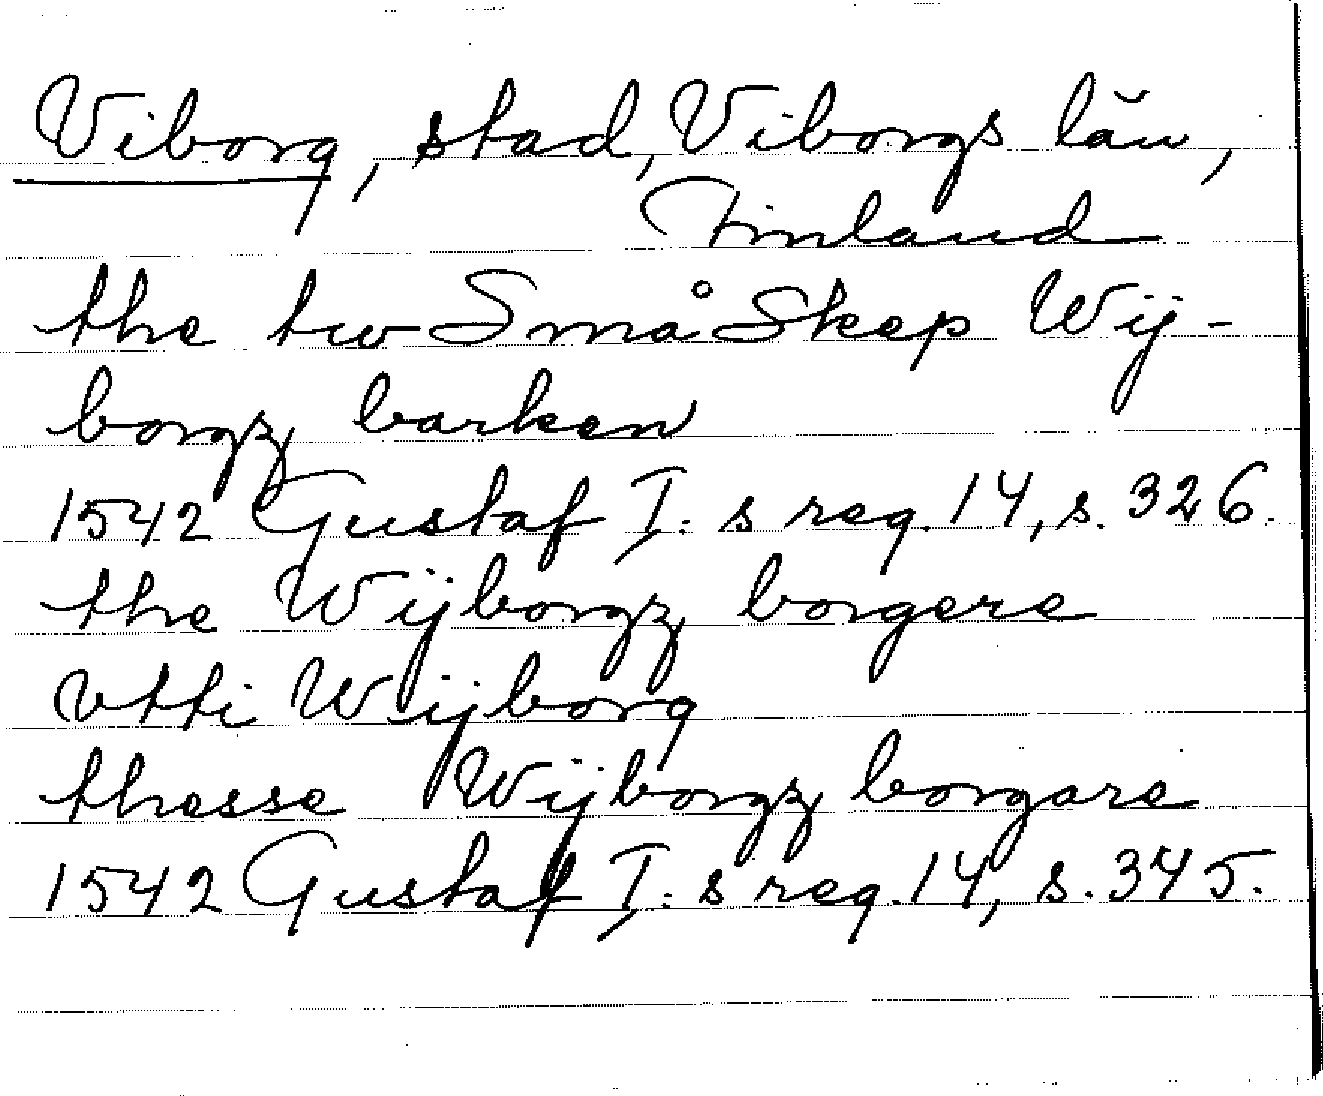 Viborg, stad, Viborgs län,
Finland
the tw Små Skep Wij-
borgz barken
1542 Gustaf I:s reg. 14, s. 326.
the Wijborgz borgere
vtti Wijborg
thesse Wijborgz borgare
1542 Gustaf I:s reg. 14, s. 345.